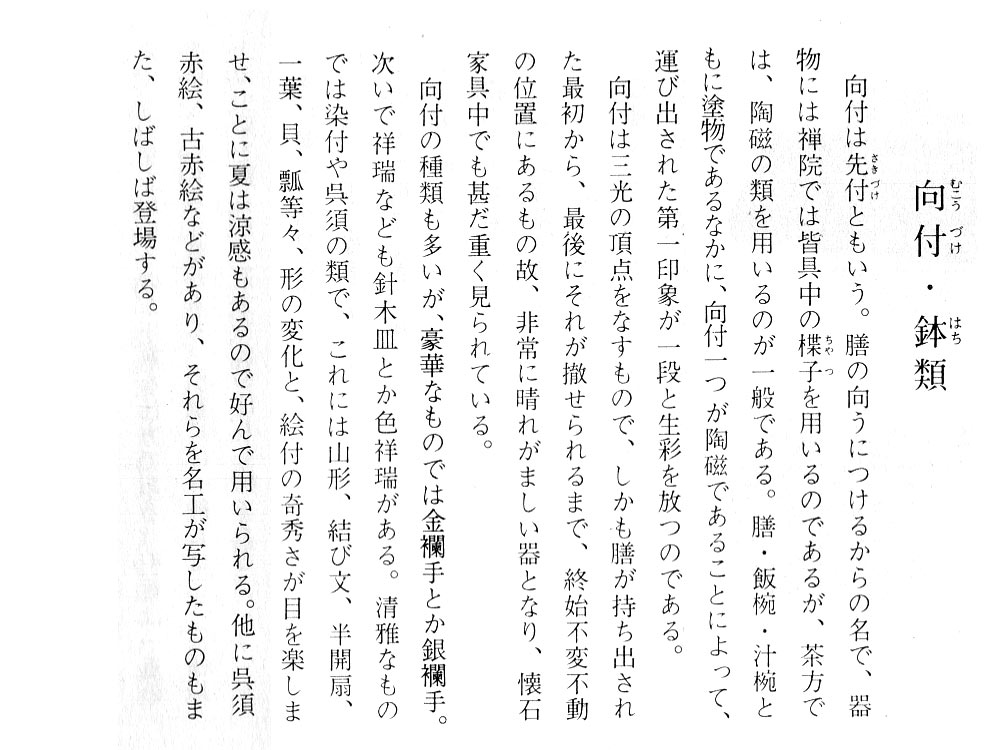 向付・鉢類
向付は先付ともいう。膳の向うにつけるからの名で、器
物には禅院では皆具中の楪子を用いるのであるが、茶方で
は、陶磁の類を用いるのが一般である。膳・飯椀・汁椀と
もに塗物であるなかに、向付一つが陶磁であることによって、
運び出された第一印象が一段と生彩を放つのである。
向付は三光の頂点をなすもので、しかも膳が持ち出され
た最初から、最後にそれが撤せられるまで、終始不変不動
の位置にあるもの故、非常に晴れがましい器となり、懐石
家具中でも甚だ重く見られている。
向付の種類も多いが、豪華なものでは金襴手とか銀襴手。
次いで祥瑞なども針木皿とか色祥瑞がある。清雅なもの
では染付や呉須の類で、これには山形、結び文、半開扇、
一葉、貝、瓢等々、形の変化と、絵付の奇秀さが目を楽しま
せ、ことに夏は涼感もあるので好んで用いられる。他に呉須
赤絵、古赤絵などがあり、それらを名工が写したものもま
た、しばしば登場する。